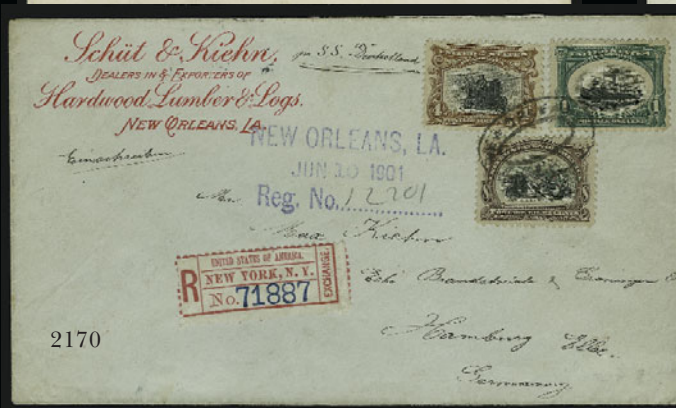 Schüt & Kiehn,
DEALERS IN & EXPORTERS OF
Hardwood Lumber & Logs.
NEW ORLEANS, LA.
per S.S. Deutschland
Einschreiben
NEW ORLEANS, LA.
JUN 10 1901
Reg. No. 12201
Max Kiehn
UNITED STATES OF AMERICA.
NEW YORK, N.Y.
EXCHANGE.
R
No. 71887
Hamburg
Germany
2170